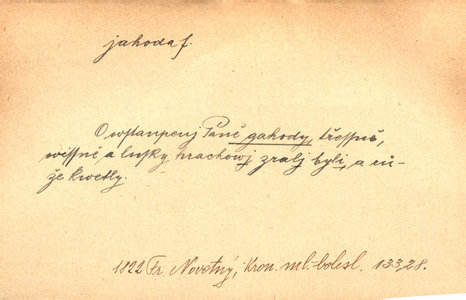 jahoda f.
O wstaupenj Páně gahody, třessně,
wissně, a lusky hrachowj zralj byli, a rů-
že kwetly.
1822 Fr. Novotný, Kron. ml.-bolesl. 133,28.